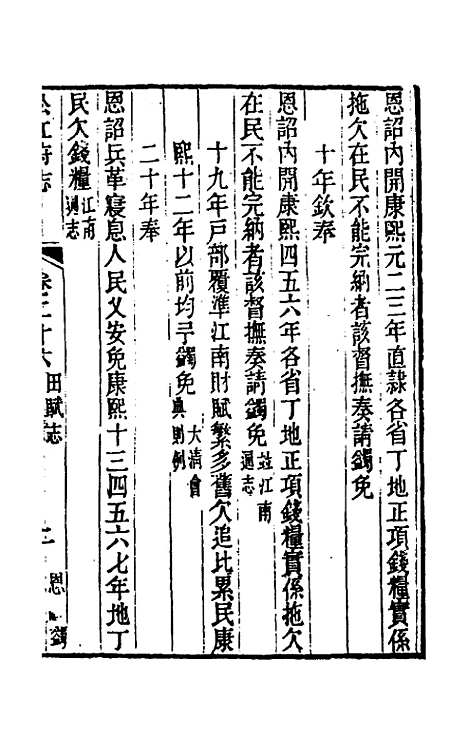 恩詔內開康熙元二三年直隷各省丁地正項錢糧實係
拖欠在民不能完納者該督撫奏請蠲免
十年欽奉
恩詔內開康熙四五六年各省丁地正項錢糧實係拖欠
在民不能完納者該督撫奏請蠲免並江南通志
十九年戸部覆準江南財賦繁多舊欠追比累民康
熙十二年以前均予蠲免大清會典則例
二十年奉
恩詔兵革寢息人民乂安免康熙十三四五六七年地丁
民欠錢糧江南通志
松江府志 卷二十六 田賦志 恩蠲